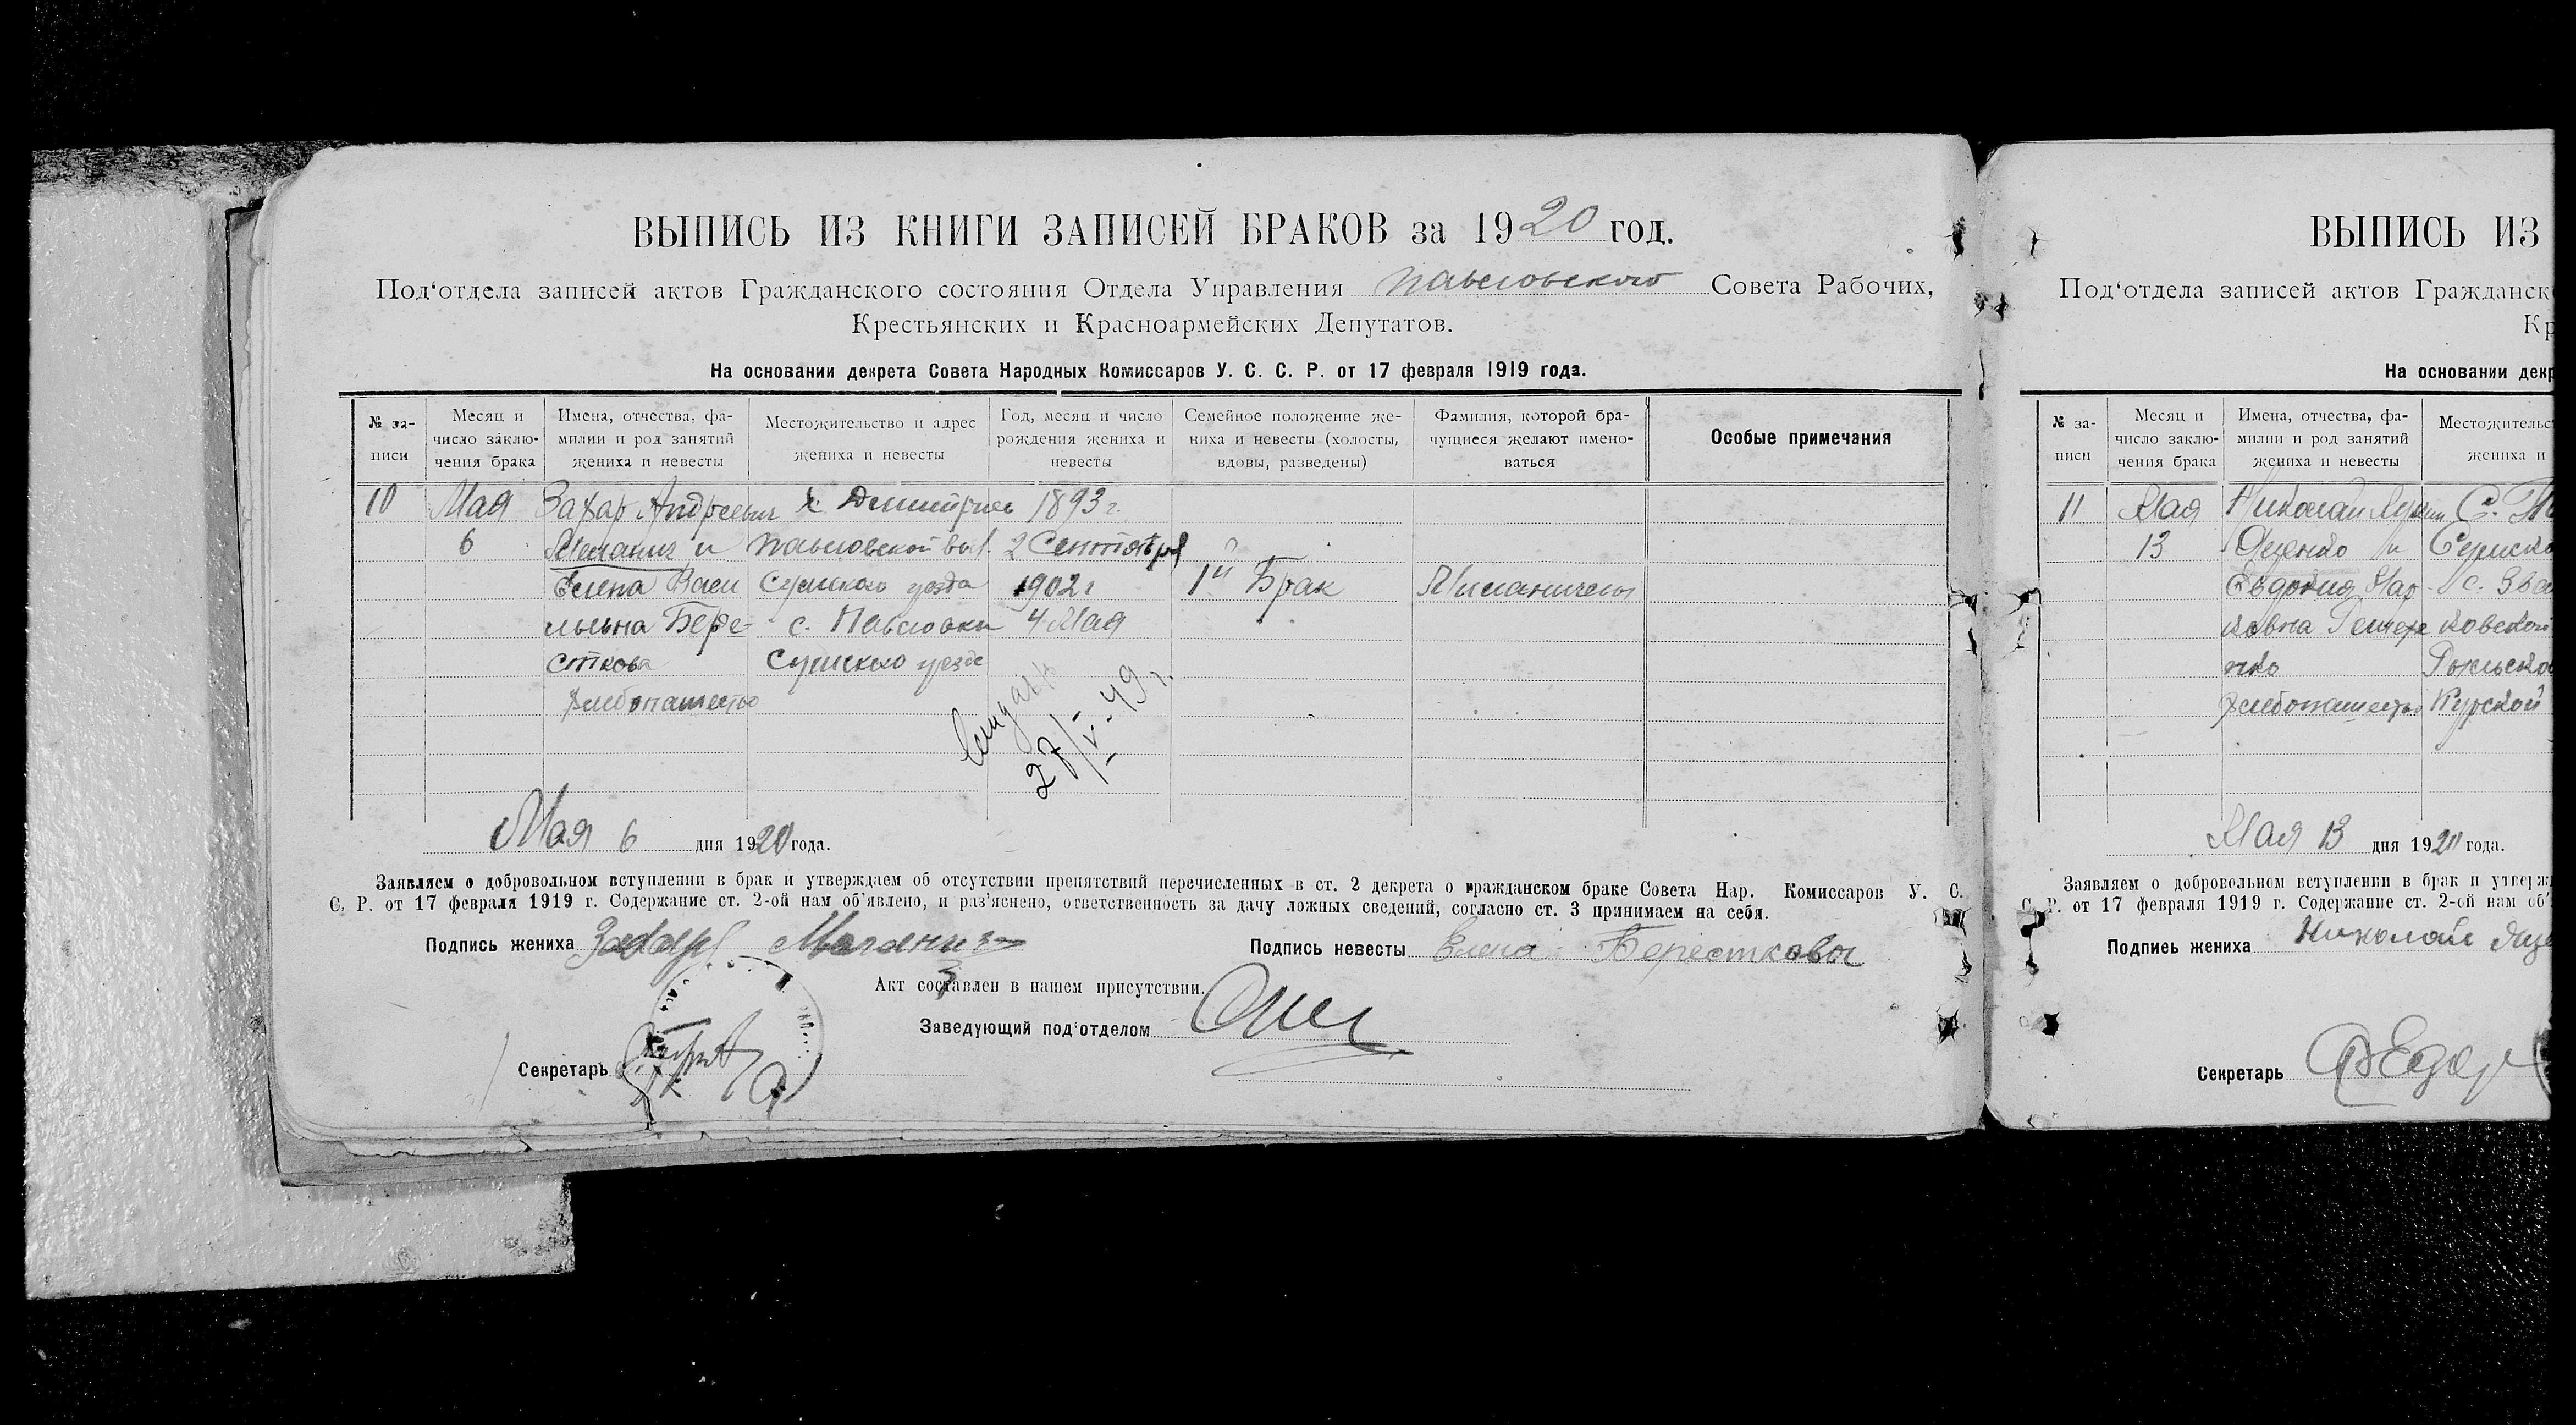 ВЫПИСЬ ИЗ КНИГИ ЗАПИСЕЙ БРАКОВ за 1920 год.
Под‘отдела записей актов Гражданского состояния Отдела Управления Павловского Совета Рабочих,
Крестьянских и Красноармейских Депутатов.
На основании декрета Совета Народных Комиссаров У. С. С. Р. от 17 февраля 1919 года.
№ за-
писи
Месяц и
число заклю-
чения брака
Имена, отчества, фа-
милии и род занятий
жениха и невесты
Местожительство и адрес
жениха и невесты
Год, месяц и число
рождения жениха и
невесты
Семейное положение же-
ниха и невесты (холосты,
вдовы, разведены)
Фамилия, которой бра-
чущиеся желают имено-
ваться
Особые примечания
10
Мая
6
Захар Андреевич
и
Елена Васи
льевна Бере-
сткова
хлебопашество
х.
Павловской вол.
Сумского уезда
с. Павловки
Сумского уезда
1893 г.
2 Сентября
1902 г
4 Мая
1й Брак
27/V-49 г.
Мая 6 дня 1920 года.
Заявляем о добровольном вступлении в брак и утверждаем об отсутствии препятствий перечисленных в ст. 2 декрета о гражданском браке Совета Нар. Комиссаров У. С.
С. Р. от 17 февраля 1919 г. Содержание ст. 2-ой нам об‘явлено, и раз‘яснено, ответственность за дачу ложных сведений, согласно ст. 3 принимаем на себя.
Подпись жениха Захар
Подпись невесты Елена Бересткова
Акт составлен в нашем присутствии.
Заведующий под‘отделом
Секретарь
ВЫПИСЬ ИЗ
Под‘отдела записей актов Гражданск
Кр
На основании декр
№ за-
писи
Месяц и
число заклю-
чения брака
Имена, отчества, фа-
милии и род занятий
жениха и невесты
Местожительст
жениха и
11
Мая
13
Николай
Яценко и
Евдокия Мар-
ковна
нко
хлебопашество
С.
Сумско
с. Зва
ковской
Рыльско
Курской
Мая 13 дня 1920 года.
Заявляем о добровольном вступлении в брак и утверж
С. Р. от 17 февраля 1919 г. Содержание ст. 2-ой нам об‘
Подпись жениха Николай Яце
Секретарь